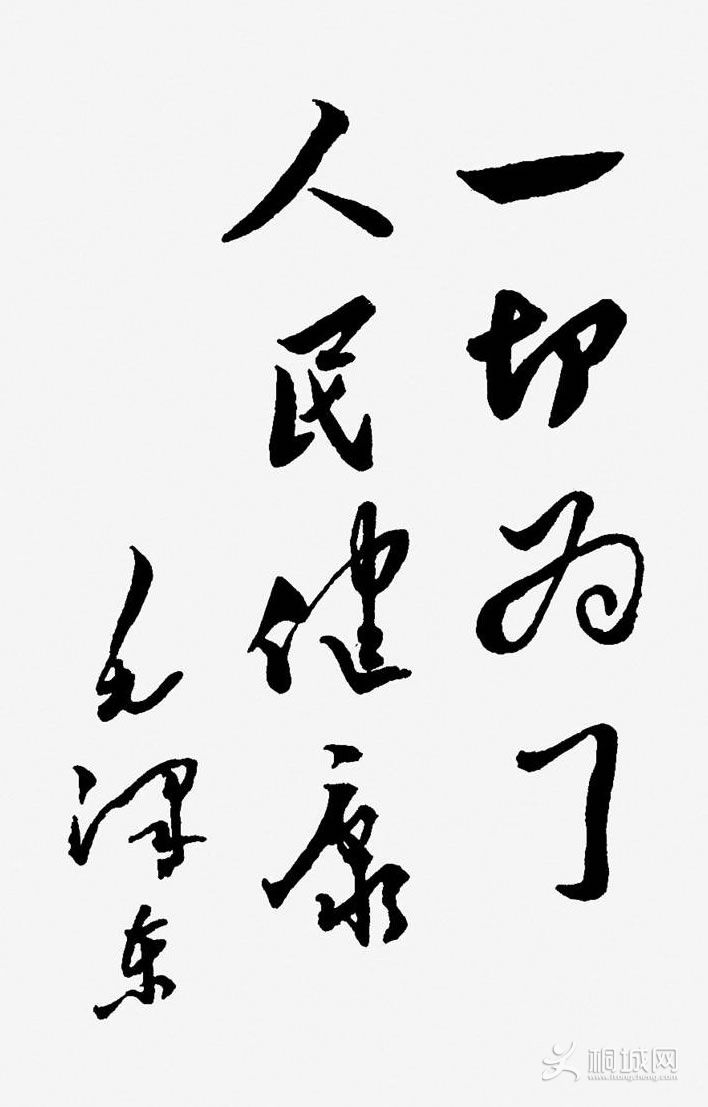 一切为了
人民健康
毛泽东
桐城网
www.itongcheng.com